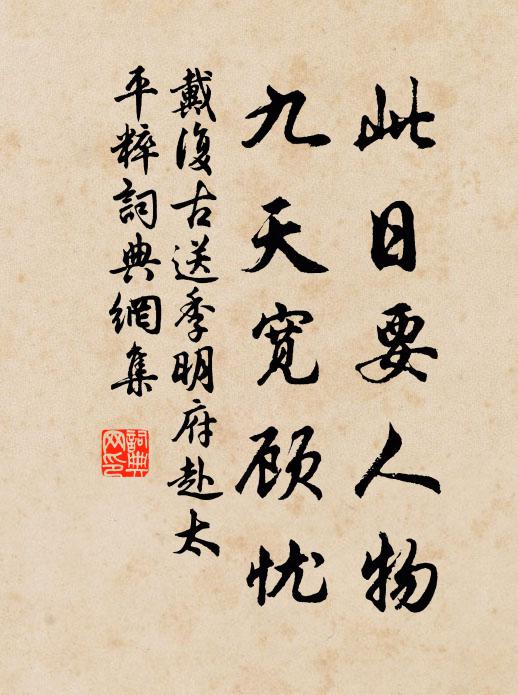 此日要人物
九天寛顾忧
戴復古送季明府赴太
平粹詞典網集
詞典
网印